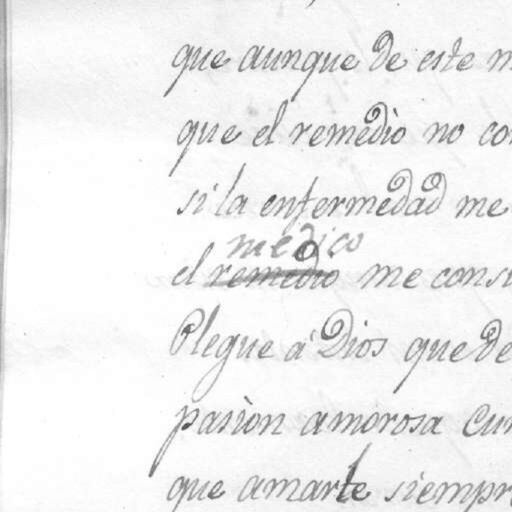 que aunque de este m
que el remedio no con
si la enfermedad me
medico
el remedio me consu
Plegue á Dios que de
pasion amorosa cur
que amarte siempre